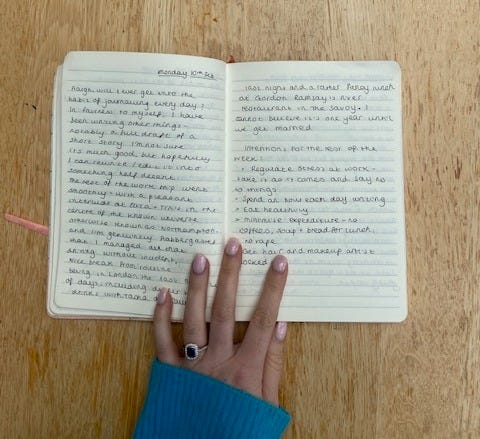 Monday 10th Feb
Naigh will I ever get into the
habit of journalling every day?
In fairness to myself, I have
been writing other things -
notably a full draft of a
short story. I'm not sure
it's much good, but hopefully
I can rewrite / edit it into
something half decent.
The rest of the work trip went
smoothly - with a pleasant
interlude at Lara + Tom's in the
centre of the known universe
otherwise known as Northampton.
and I'm genuinely flabbergasted
that I managed all that
driving without incident.
Nice break from routine
being in London the last
of days, including dinner
drinks with
last night and a Lester Piggy lunch
at Gordon Ramsay's River
restaurant in the Savoy. I
cannot believe it's one year until
we get married
Intentions for the rest of the
week:
Regulate stress at work -
take it as it comes and say no
to things
Spend an hour each day writing
Eat healthily
Minimise expenditure - no
coffees, soup + bread for lunch
no vape
Get hair and makeup artist
booked